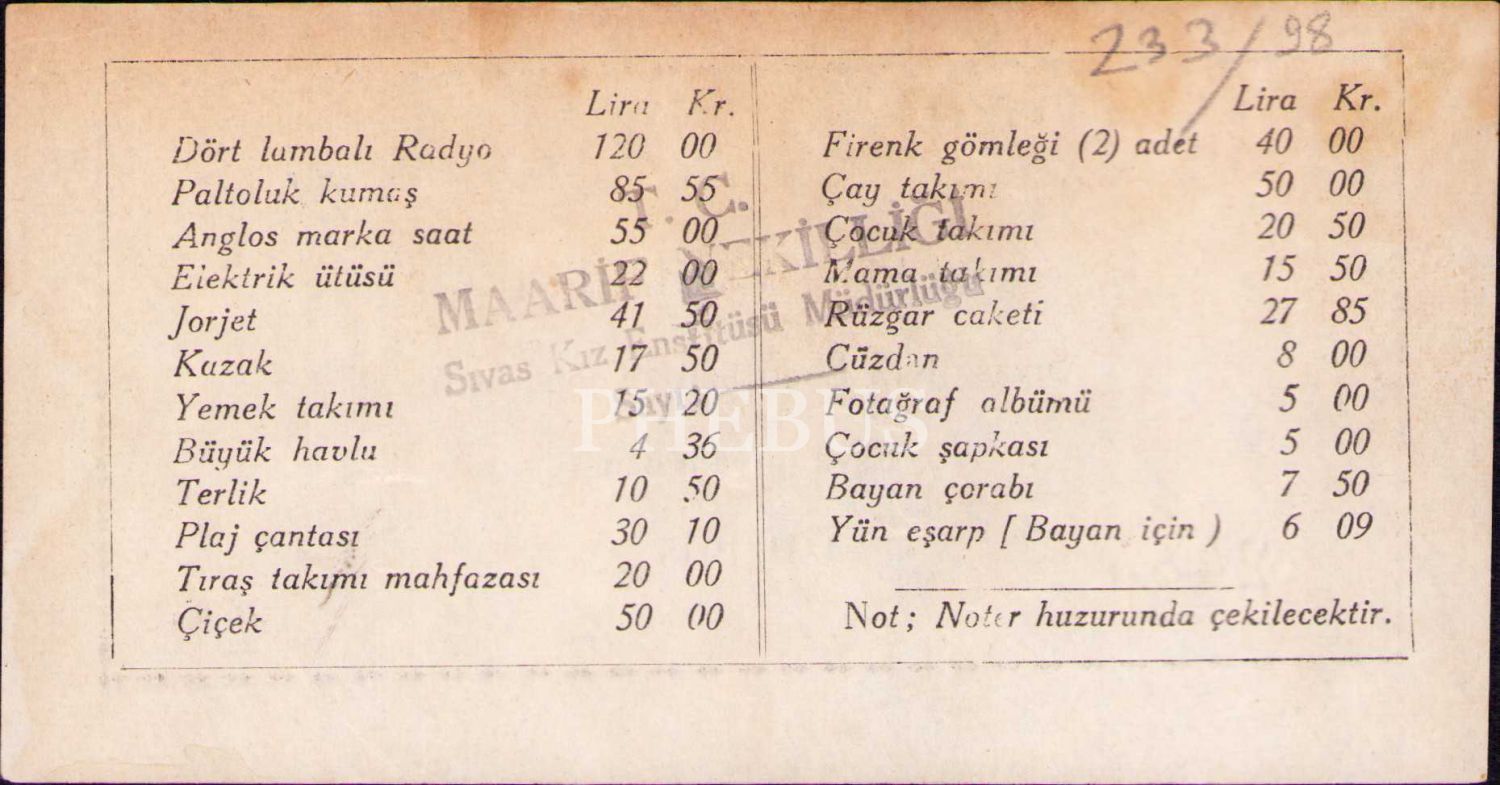 233/98
Lira Kr.
Dört lambalı Radyo 120 00
Paltoluk kumaş 85 55
Anglos marka saat 55 00
Elektrik ütüsü 22 00
Jorjet 41 50
Kazak 17 50
Yemek takımı 15 20
Büyük havlu 4 36
Terlik 10 50
Plaj çantası 30 10
Tıraş takımı mahfazası 20 00
Çiçek 50 00
Lira Kr.
Firenk gömleği (2) adet 40 00
Çay takımı 50 00
Çocuk takımı 20 50
Mama takımı 15 50
Rüzgar caketi 27 85
Cüzdan 8 00
Fotağraf albümü 5 00
Çocuk şapkası 5 00
Bayan çorabı 7 50
Yün eşarp [ Bayan için ) 6 09
Not; Noter huzurunda çekilecektir.
T. C.
MAARİF VEKİLLİĞİ
Sıvas Kız Enstitüsü Müdürlüğü
PHEBUS